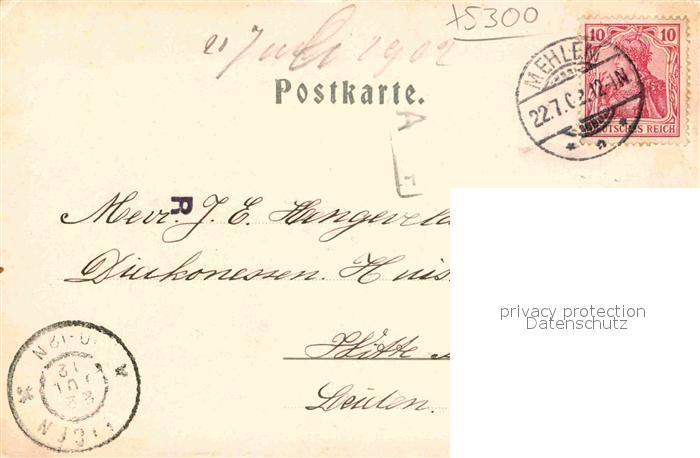 +5300
21 Juli 1902
Postkarte.
10 10
DEUTSCHES REICH
MEHLEM
22.7.02.12-1N
A
F
R
Mevr. J. E. Hangeveld
Diakonessen Huis
Witte
Leiden.
privacy protection
Datenschutz
22
JUL
12